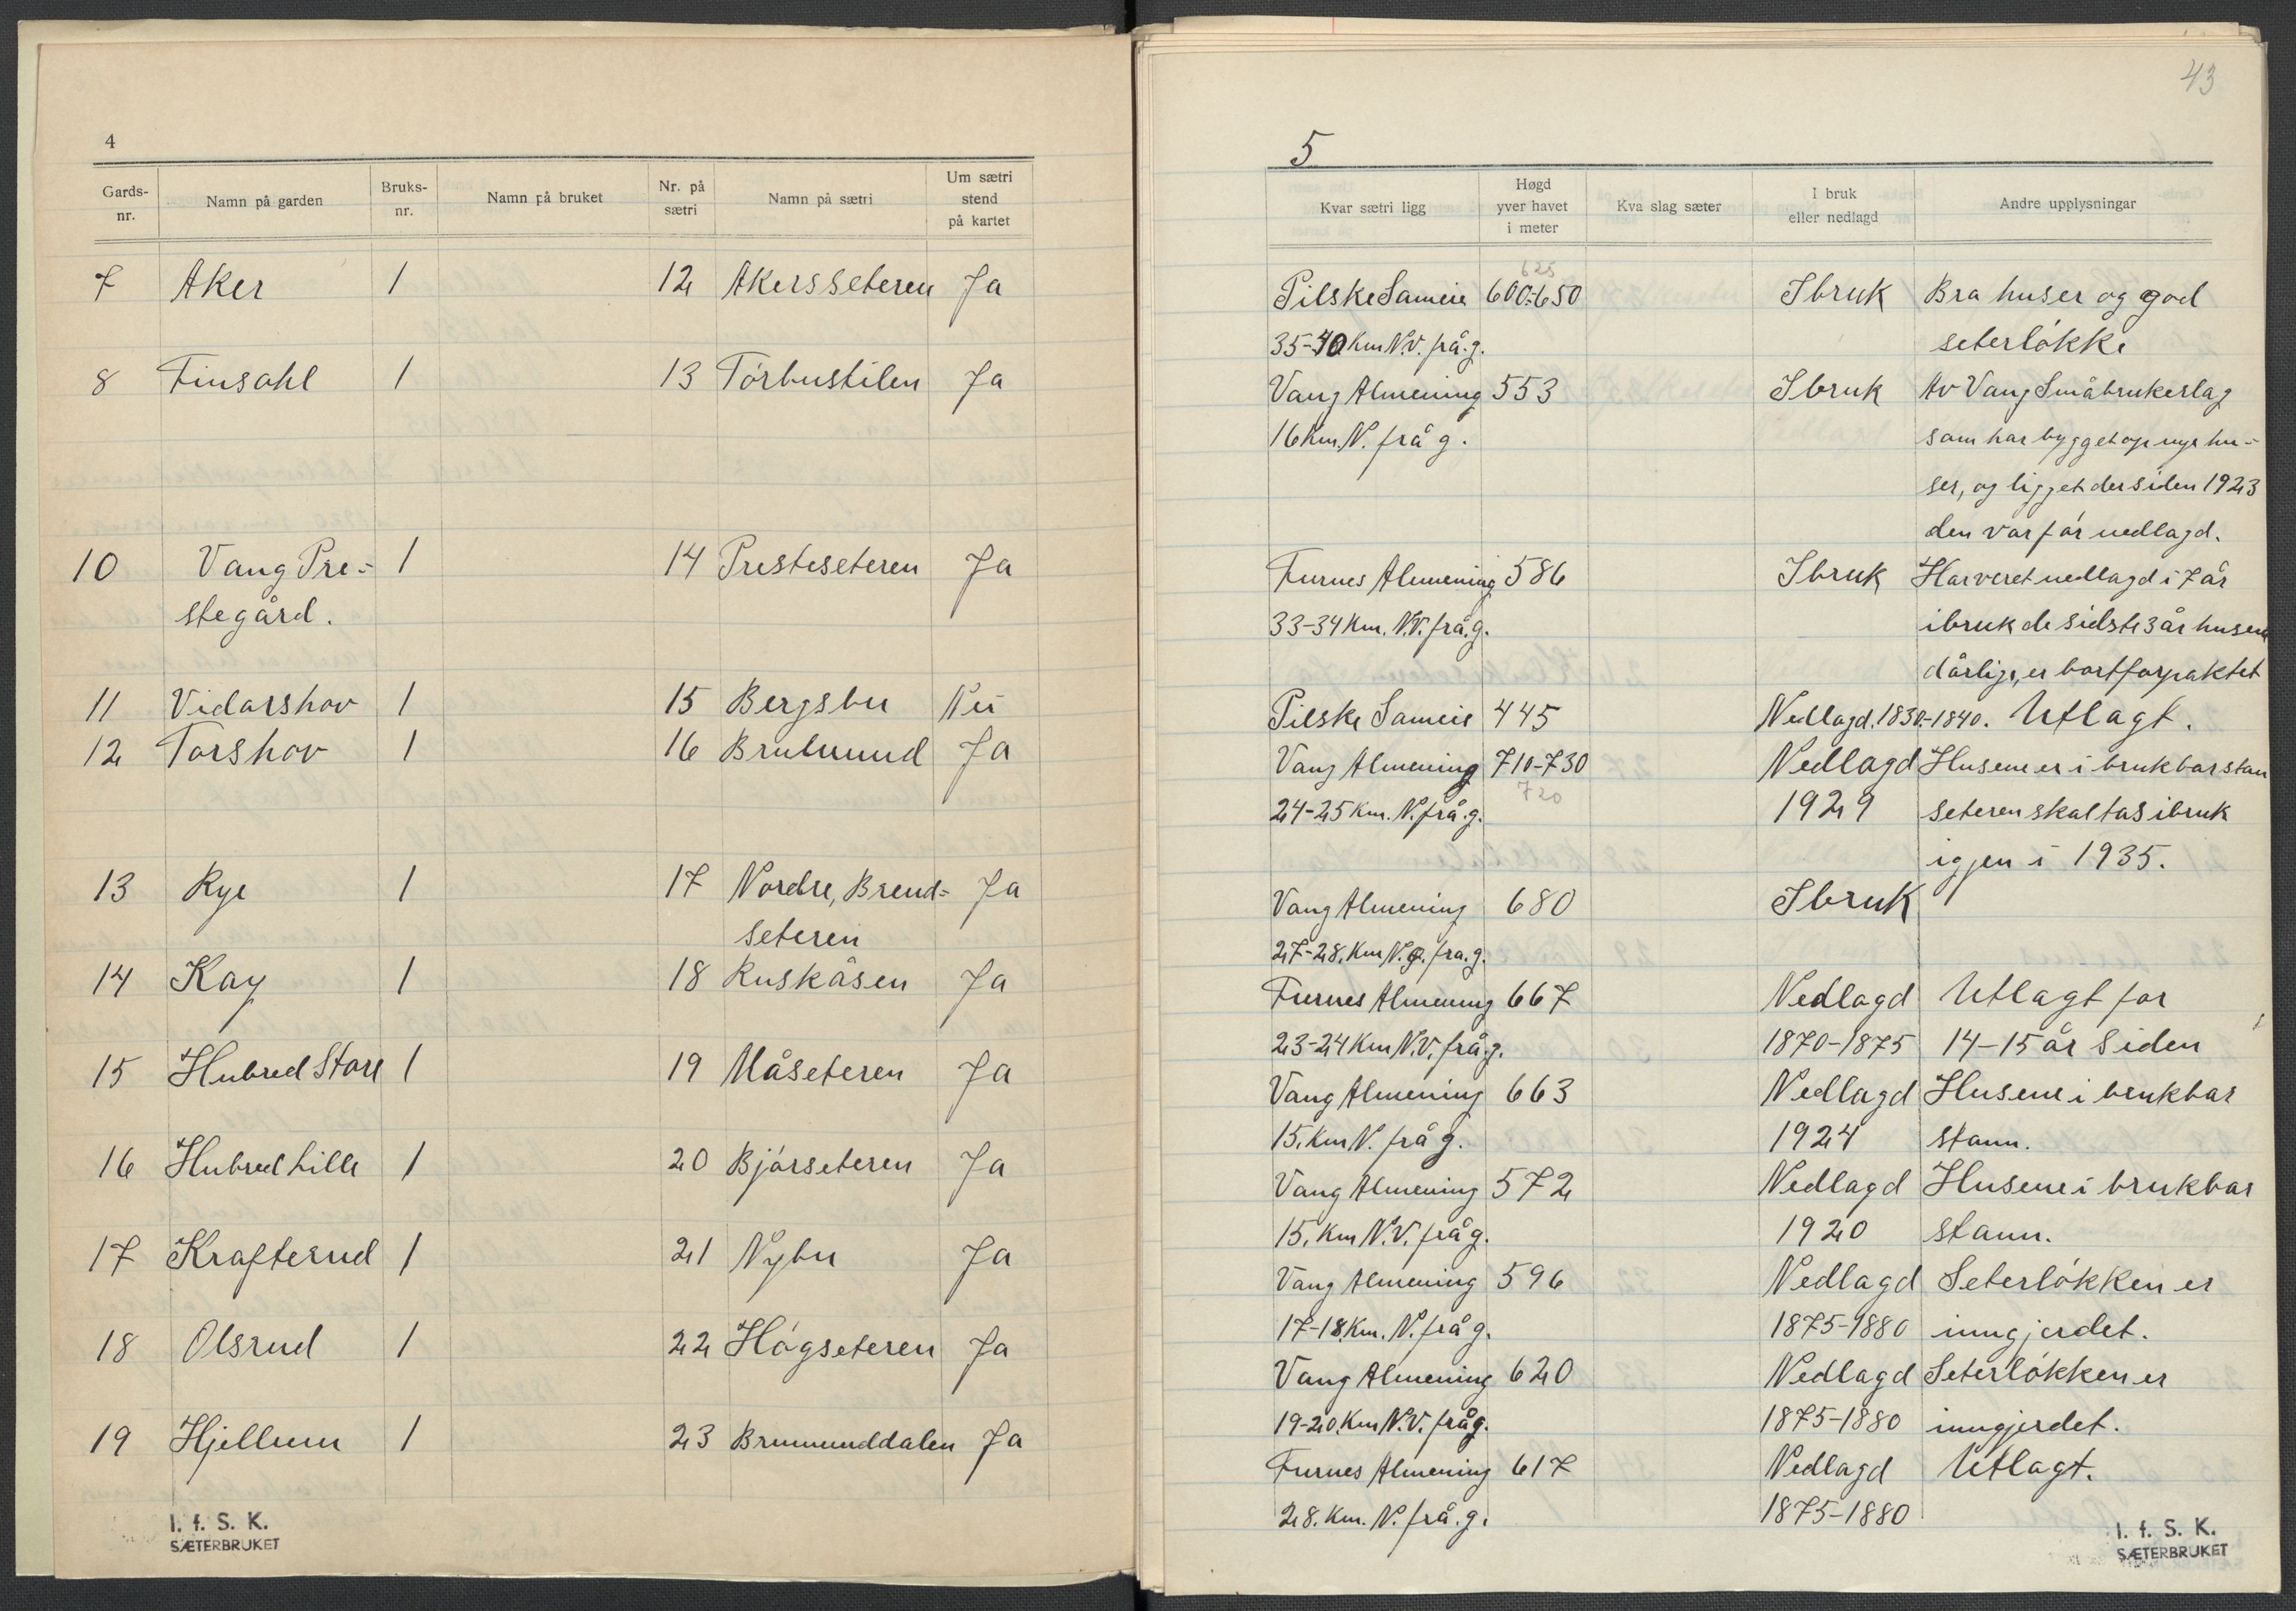 4
Gards-nr. Namn på garden Bruks-nr. Namn på bruket Nr. på sætri Namn på sætri Um sætri stend på kartet
7 Aker 1 12 Akersseteren Ja
8 Finsahl 1 13 Törbustilen Ja
10 Vang Pre- 1 14 Presteseteren Ja
stegård.
11 Vidarshov 1 15 Bergsbu Nei
12 Torshov 1 16 Brubmund Ja
13 Rye 1 17 Nordre, Brend- Ja
seteren
14 Kay 1 18 Ruskåsen Ja
15 Hubred Store 1 19 Måseteren Ja
16 Hubred Lille 1 20 Bjórseteren Ja
17 Krafterud 1 21 Nybu Ja
18 Olsrud 1 22 Högseteren Ja
19 Hjellum 1 23 Brumunddalen Ja
I. f. S. K.
SÆTERBRUKET
43
5
Kvar sætri ligg Høgd yver havet i meter Kva slag sæter I bruk eller nedlagd Andre upplysningar
625
Pilske Sameie 600-650 Ibruk Bra huser og god
35-40 Km N.V. frå.g. seterlökke
Vang Almening 553 Ibruk Av Vang Småbrukerlag
16 Km. N. frå g. som har bygget op nye hu-
ser, og ligget der siden 1923
den var för nedlagd.
Furnes Almening 586 Ibruk Har veret nedlagd i 7 år
33-34 Km. N.V. frå.g. ibruk de sidste 3 år husene
dårlige, er bortforpaktet
Pilske Sameie 445 Nedlagd. 1830-1840. Utlagt.
Vang Almening 710-730 Nedlagd Husene er i brukbar stan
720
24-25 Km. N. frå.g. 1929 seteren skal tas ibruk
igjen i 1935.
Vang Almening 680 Ibruk
27-28. Km N.Ø. fra.g.
Furnes Almening 667 Nedlagd Utlagt for
23-24 Km N.V. frå.g. 1870-1875 14-15 år siden
Vang Almening 663 Nedlagd Husene i brukbar
15. Km N. frå g. 1924 stann.
Vang Almening 572 Nedlagd Husene i brukbar
15. Km N.V. frå g. 1920 stann.
Vang Almening 596 Nedlagd Seterlökken er
17-18 Km. N. frå g. 1875-1880 inngjerdet.
Vang Almening 620 Nedlagd Seterlökken er
19-20. Km N.V. frå g. 1875-1880 inngjerdet.
Furnes Almening 617 Nedlagd Utlagt.
28. Km. N. frå.g. 1875-1880
I. f. S. K.
SÆTERBRUKET